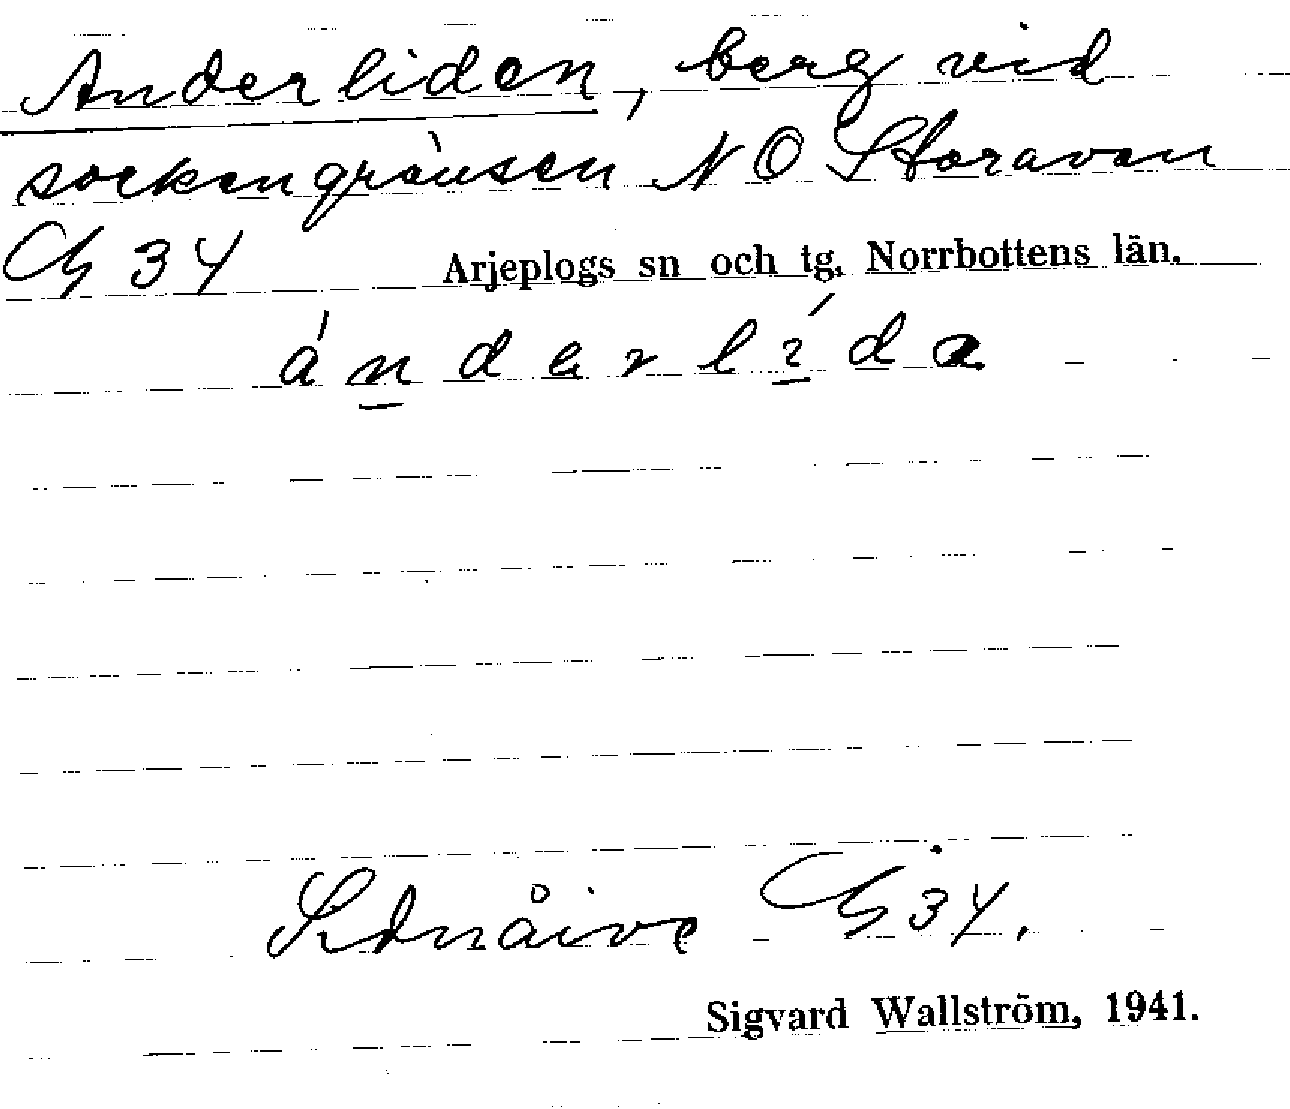 Anderliden, berg vid
sockengränsen NO Storavan
G 34 Arjeplogs sn och tg. Norrbottens län.
ánderlída
G 34.
Sigvard Wallström, 1941.